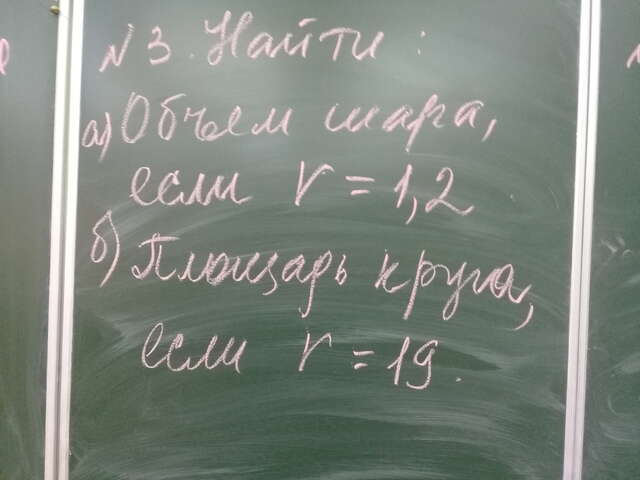 N 3. Найти:
а) Объем шара,
если r = 1,2
б) Площадь круга,
если r = 19.